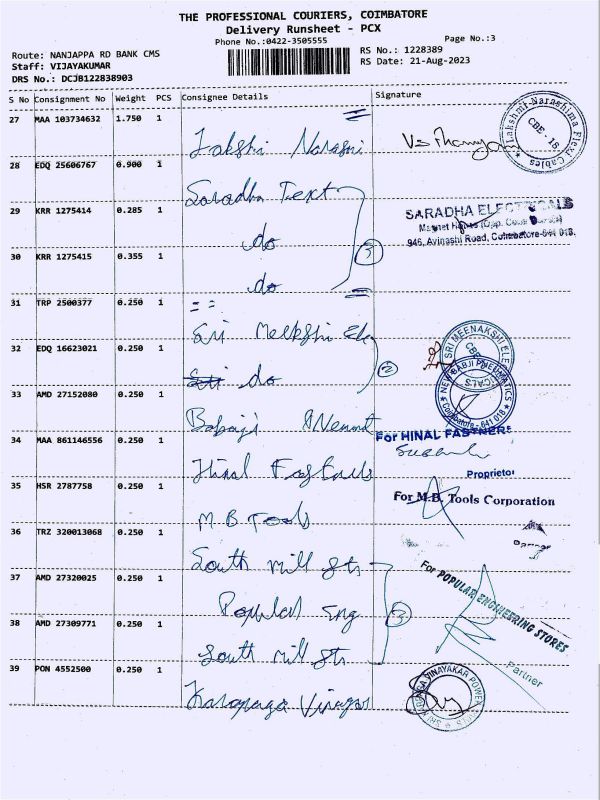 THE PROFESSIONAL COURIERS, COIMBATORE
Delivery Runsheet - PCX
Phone No.:0422-3505555
Page No.:3
Route: NANJAPPA RD BANK CMS
RS No.: 1228389
Staff: VIJAYAKUMAR
RS Date: 21-Aug-2023
DRS No.: DCJB122838903
S No Consignment No Weight PCS Consignee Details Signature
27 MAA 103734632 1.750 1
Lakshmi Narasimha Flex Cables
CBE - 18
28 EDQ 25606767 0.900 1
Saradha Text
29 KRR 1275414 0.285 1
SARADHA ELECTRICALS
946, Avinashi Road, Coimbatore-641 018.
do
30 KRR 1275415 0.355 1
3
do
31 TRP 2500377 0.250 1
Sri
SRI MEENAKSHI ELECTRICALS
CBE
32 EDQ 16623021 0.250 1
2
do
NEW BABJI PNEUMATICS
Coimbatore - 641 018
33 AMD 27152080 0.250 1
34 MAA 861146556 0.250 1
For HINAL FASTNERS
Hinal
Proprietor
35 HSR 2787758 0.250 1
For M.B. Tools Corporation
M.B Tools
36 TRZ 320013068 0.250 1
South mill Sts
For POPULAR ENGINEERING STORES
Partner
37 AMD 27320025 0.250 1
Popular Eng
38 AMD 27309771 0.250 1
South mill Sts
39 PON 4552500 0.250 1